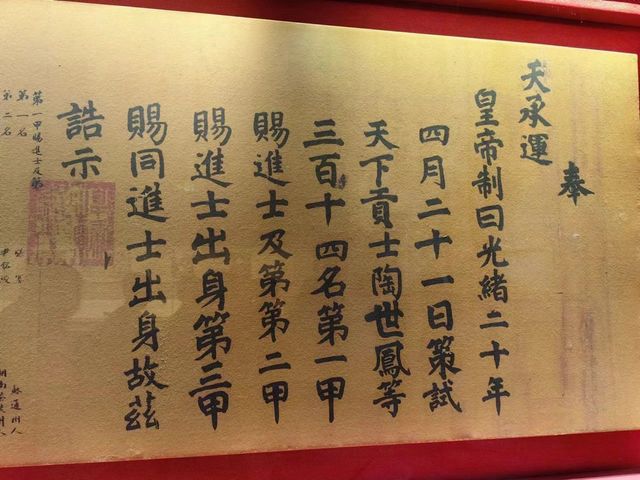 奉
天承運
皇帝制曰光緒二十年
四月二十一日策試
天下貢士陶世鳳等
三百十四名第一甲
賜進士及第第二甲
賜進士出身第三甲
賜同進士出身故茲
誥示
第一甲賜進士及第
第一名
第二名